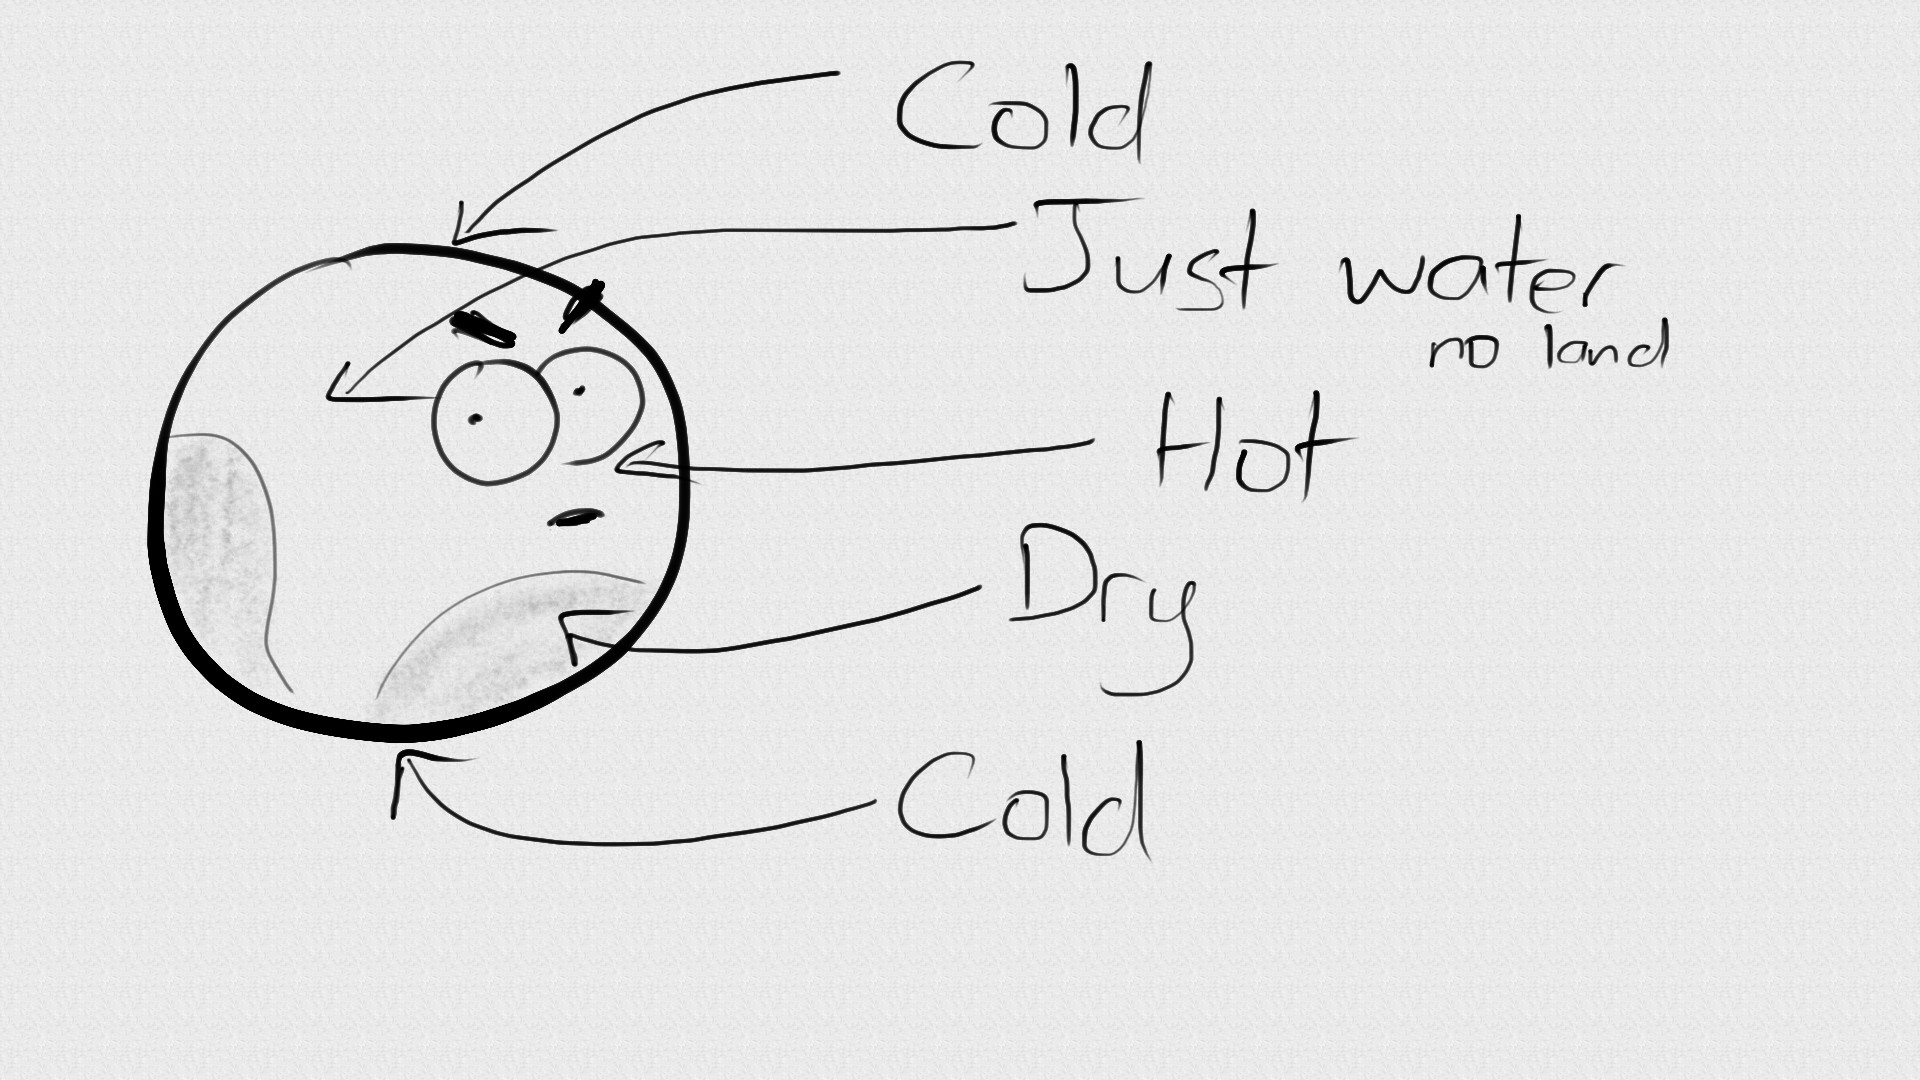 Cold
Just water
no land
Hot
Dry
Cold